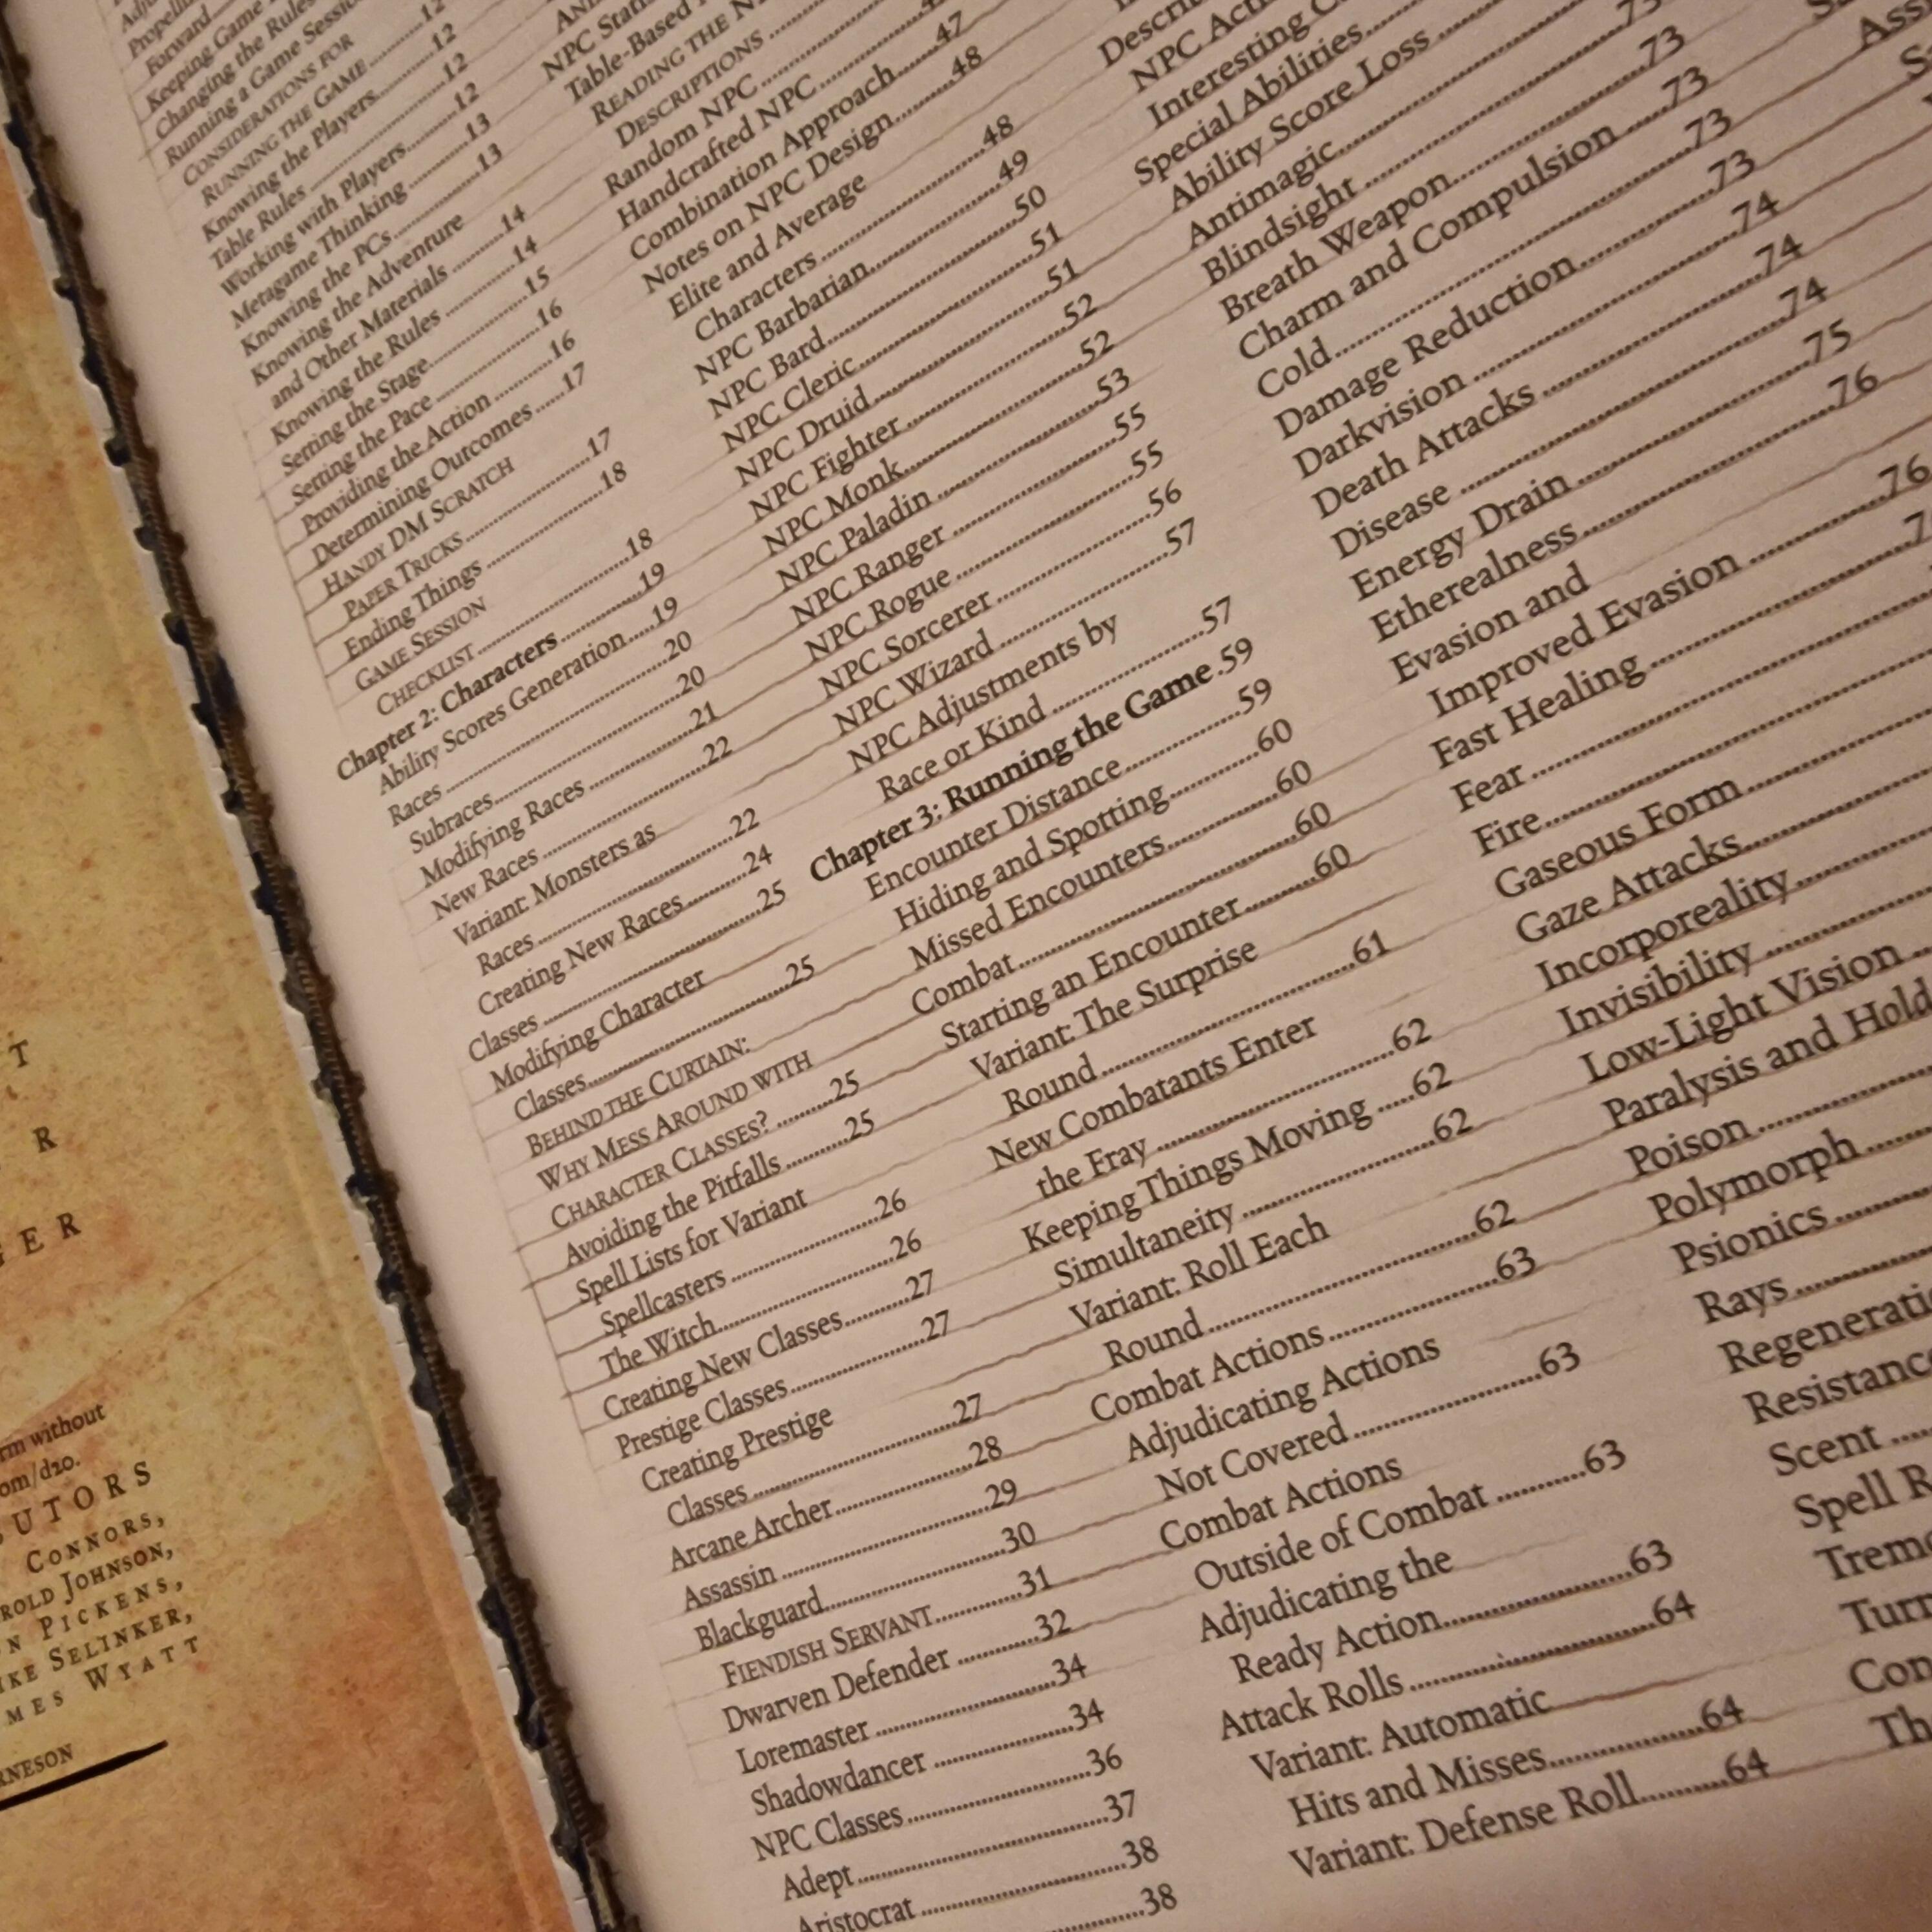 T
R
GER
rm without
om/d20.
UTORS
CONNORS,
ROLD JOHNSON,
N PICKENS,
IKE SELINKER,
MES WYATT
RNESON
Forward
Keeping Game
Changing the Rules
Running a Game Sessio
CONSIDERATIONS FOR
RUNNING THE GAME..........12
Knowing the Players..........12
Table Rules..........12
Working with Players..........12
Metagame Thinking..........13
Knowing the PCs..........13
Knowing the Adventure
and Other Materials..........14
Knowing the Rules..........14
Setting the Stage..........15
Setting the Pace..........16
Providing the Action..........16
Determining Outcomes......17
HANDY DM SCRATCH
PAPER TRICKS..........17
Ending Things..........18
GAME SESSION
CHECKLIST..........18
Chapter 2: Characters..........19
Ability Scores Generation.....19
Races..........20
Subraces..........20
Modifying Races..........21
New Races..........22
Variant: Monsters as
Races..........22
Creating New Races.........24
Classes..........25
Modifying Character
Classes..........25
BEHIND THE CURTAIN:
WHY MESS AROUND WITH
CHARACTER CLASSES?.........25
Avoiding the Pitfalls..........25
Spell Lists for Variant
Spellcasters..........26
The Witch..........26
Creating New Classes..........27
Prestige Classes..........27
Creating Prestige
Classes..........27
Arcane Archer..........28
Assassin..........29
Blackguard..........30
FIENDISH SERVANT..........31
Dwarven Defender..........32
Loremaster..........34
Shadowdancer..........34
NPC Classes..........36
Adept..........37
Aristocrat..........38
..........38
NPC Stati
Table-Based
READING THE N
DESCRIPTIONS
Random NPC
Handcrafted NPC..........47
Combination Approach.......48
Notes on NPC Design
Elite and Average
Characters..........48
NPC Barbarian..........49
NPC Bard..........50
NPC Cleric..........51
NPC Druid..........51
NPC Fighter..........52
NPC Monk..........52
NPC Paladin..........53
NPC Ranger..........55
NPC Rogue..........55
NPC Sorcerer..........56
NPC Wizard..........57
NPC Adjustments by
Race or Kind..........57
Chapter 3: Running the Game.59
Encounter Distance..........59
Hiding and Spotting..........60
Missed Encounters..........60
Combat..........60
Starting an Encounter..........60
Variant: The Surprise
Round..........61
New Combatants Enter
the Fray..........62
Keeping Things Moving.....62
Simultaneity..........62
Variant: Roll Each
Round..........62
Combat Actions..........63
Adjudicating Actions
Not Covered..........63
Combat Actions
Outside of Combat..........63
Adjudicating the
Ready Action..........63
Attack Rolls..........64
Variant: Automatic
Hits and Misses..........64
Variant: Defense Roll..........64
Descri
NPC Acti
Interesting C
Special Abilities
Ability Score Loss
Antimagic..........73
Blindsight..........73
Breath Weapon..........73
Charm and Compulsion......73
Cold..........73
Damage Reduction..........74
Darkvision..........74
Death Attacks..........74
Disease..........75
Energy Drain..........76
Etherealness
Evasion and
Improved Evasion..........76
Fast Healing
Fear
Fire
Gaseous Form
Gaze Attacks
Incorporeality
Invisibility
Low-Light Vision
Paralysis and Hold
Poison
Polymorph
Psionics
Rays
Regenerati
Resistance
Scent
Spell R
Trem
Turn
Con
Th